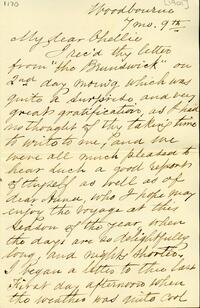 1170
[1901]
Woodbourne
7 mo. 9th
My dear Phellie
I rec'd thy letter
from "the Brunswick" on
2nd day morn'g which was
quite a surprise and very
great gratification, as I had
no thought of thy taking time
to write to me; and we
were all much pleased to
hear such a good report
of thyself as well as of
dear Anna, who I hope may
enjoy the voyage at this
season of the year when
the days are so delightfully
long, and nights shorter.
I began a letter to thee last
First day afternoon when
the weather was quite cool